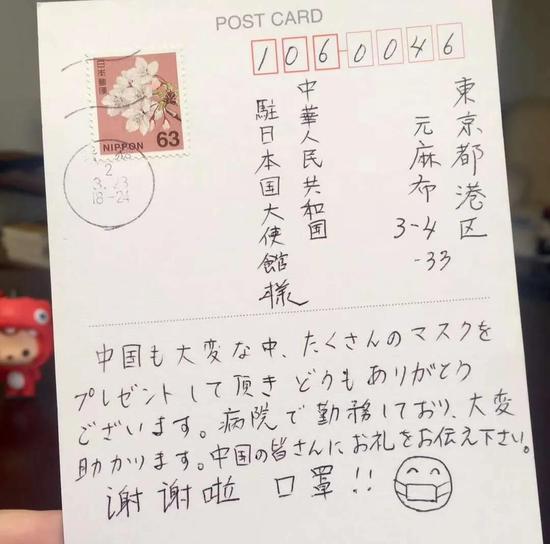 POST CARD
日本郵便
NIPPON 63
2
3.23
18-24
1060046
東京都港区
元麻布
3-4
-33
中華人民共和国
駐日本国大使館様
中国も大変な中、たくさんのマスクを
プレゼントして頂きどうもありがとう
ございます。病院で勤務しており、大変
助かります。中国の皆さんにお礼をお伝え下さい。
谢谢啦 口罩!!